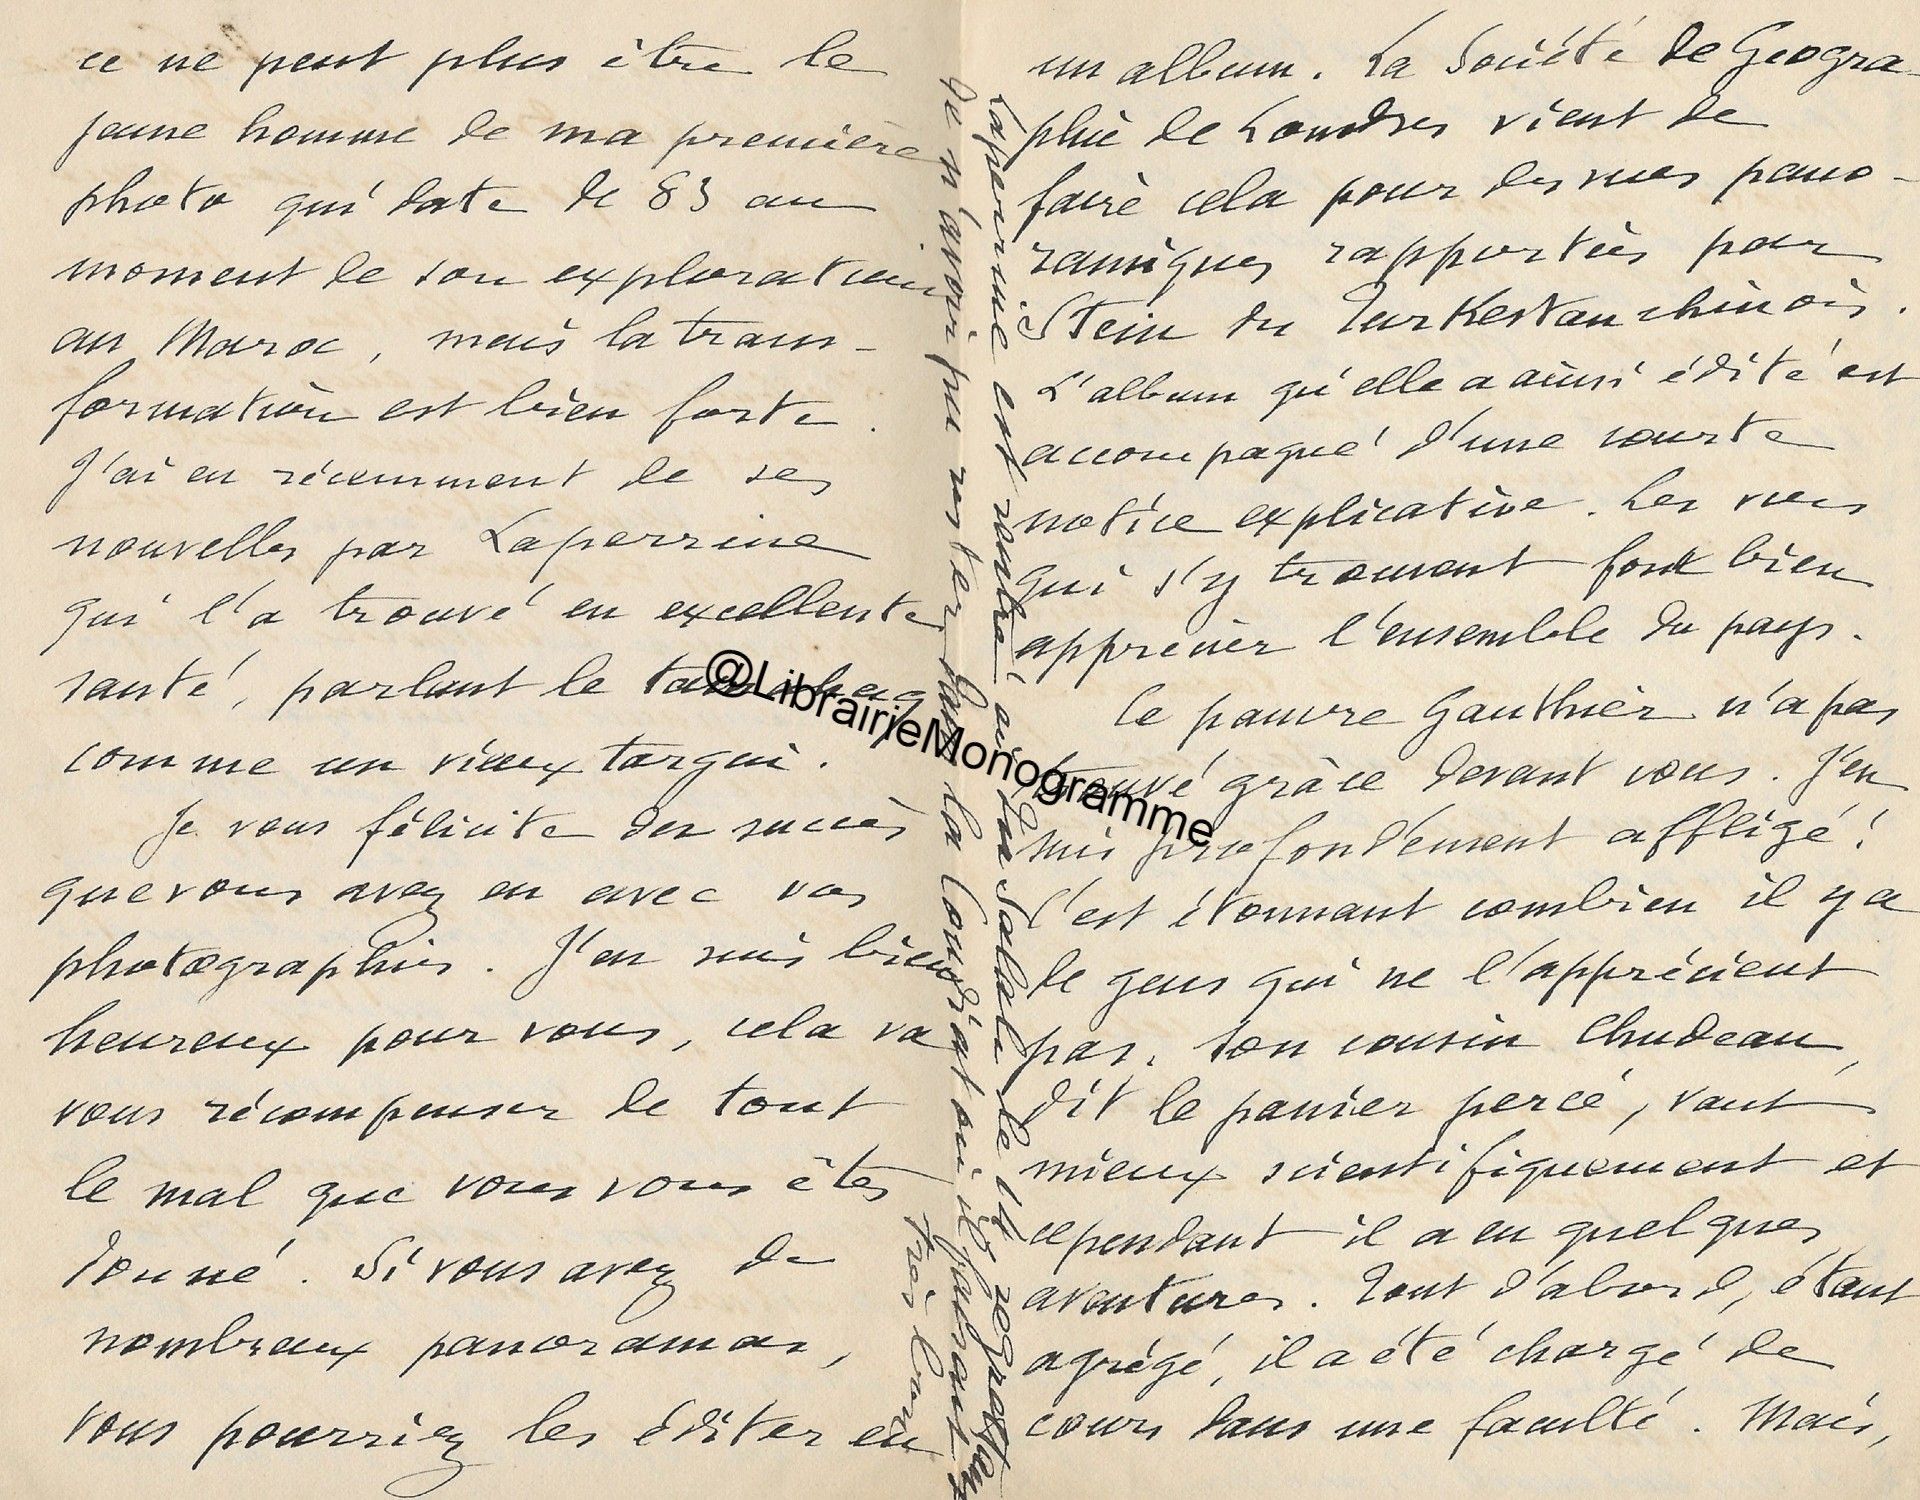 ce ne peut plus être le
jeune homme de ma première
photo qui date de 83 au
moment de son exploration
au Maroc, mais la trans-
formation est bien forte.
J'ai eu récemment de ses
nouvelles par Laperrine
qui l'a trouvé en excellente
santé, parlant le tamahaq
comme un vieux targui.
Je vous félicite des succès
que vous avez eu avec vos
photographies. J'en suis bien
heureux pour vous, cela va
vous récompenser de tout
le mal que vous vous êtes
donné. Si vous avez de
nombreux panoramas,
vous pourriez les éditer en
un album. La Société de Géogra-
phie de Londres vient de
faire cela pour des vues pano-
ramiques rapportées par
Stein du Turkestan chinois.
L'album qu'elle a ainsi édité est
accompagné d'une courte
notice explicative. Les vues
qui s'y trouvent font bien
apprécier l'ensemble du pays.
Ce pauvre Gauthier n'a pas
trouvé grâce devant vous. J'en
suis profondément affligé!
C'est étonnant combien il y a
de gens qui ne l'apprécient
pas. Son cousin Chudeau,
dit le panier percé, vaut
mieux scientifiquement et
cependant il a eu quelques
aventures. Tout d'abord, étant
agrégé, il a été chargé de
cours dans une faculté. Mais,
Laperrine est rentré à In Salah le 14 regrettant
de n'avoir pu rester dans la Coudiat où il faisait
très bon
@LibrairieMonogramme